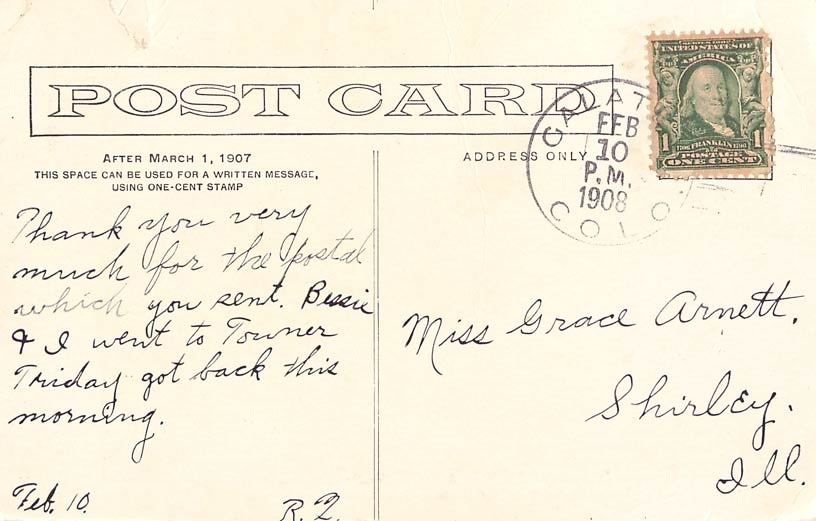 POST CARD
AFTER MARCH 1, 1907
THIS SPACE CAN BE USED FOR A WRITTEN MESSAGE,
USING ONE-CENT STAMP
ADDRESS ONLY
Thank you very
much for the postal
which you sent. Bessie
& I went to Towner
Friday got back this
morning.
Feb. 10.
Miss Grace Arnett.
Shirley.
Ill.
FEB
10
P.M.
1908
COLO
SERIES 1902
UNITED STATES OF
AMERICA
1 FRANKLIN 1
POSTAGE
ONE CENT